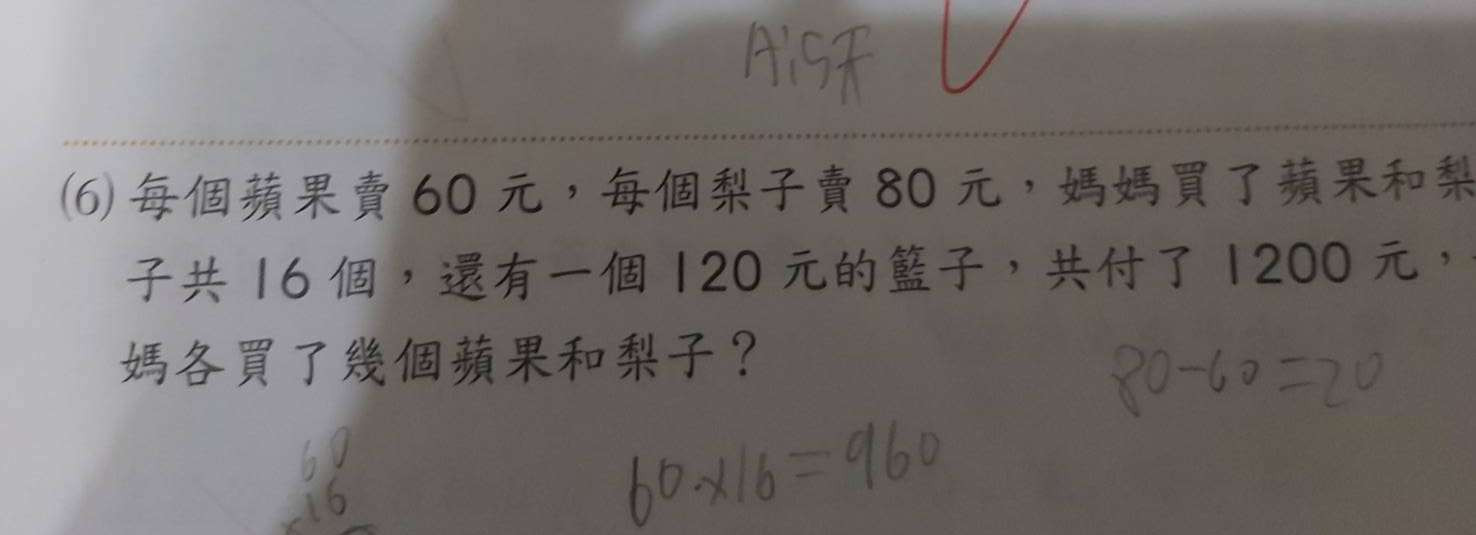 A:5天
(6) 每個蘋果賣 60 元，每個梨子賣 80 元，媽媽買了蘋果和梨
子共 16 個，還有一個 120 元的籃子，共付了 1200 元，
媽各買了幾個蘋果和梨子？
80-60=20
60×16=960
60
×16